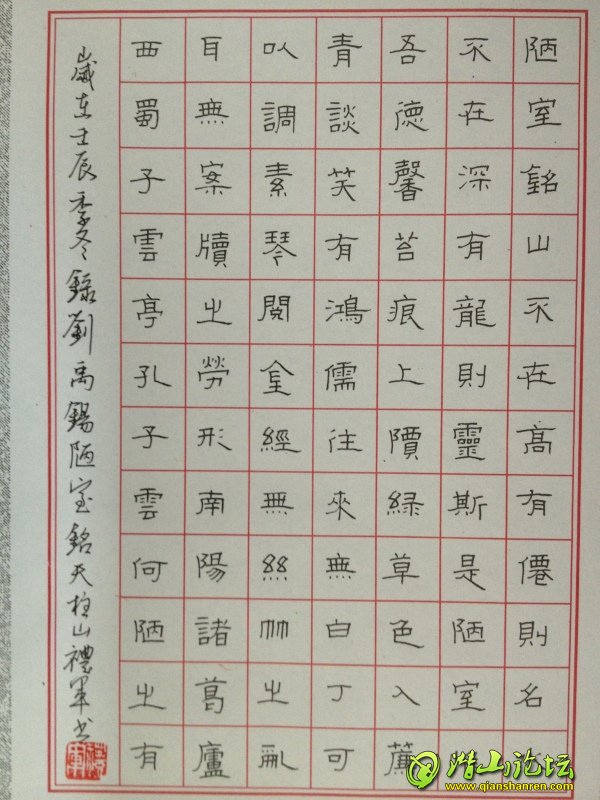 陋室銘山不在高有僊則名
不在深有龍則靈斯是陋室
吾德馨苔痕上階綠草色入簾
青談笑有鴻儒往來無白丁可
以調素琴閱金經無絲竹之亂
耳無案牘之勞形南陽諸葛廬
西蜀子雲亭孔子雲何陋之有
歲在壬辰季冬錄劉禹錫陋室銘天柱山禮軍书
潜山论坛
www.qianshanren.com